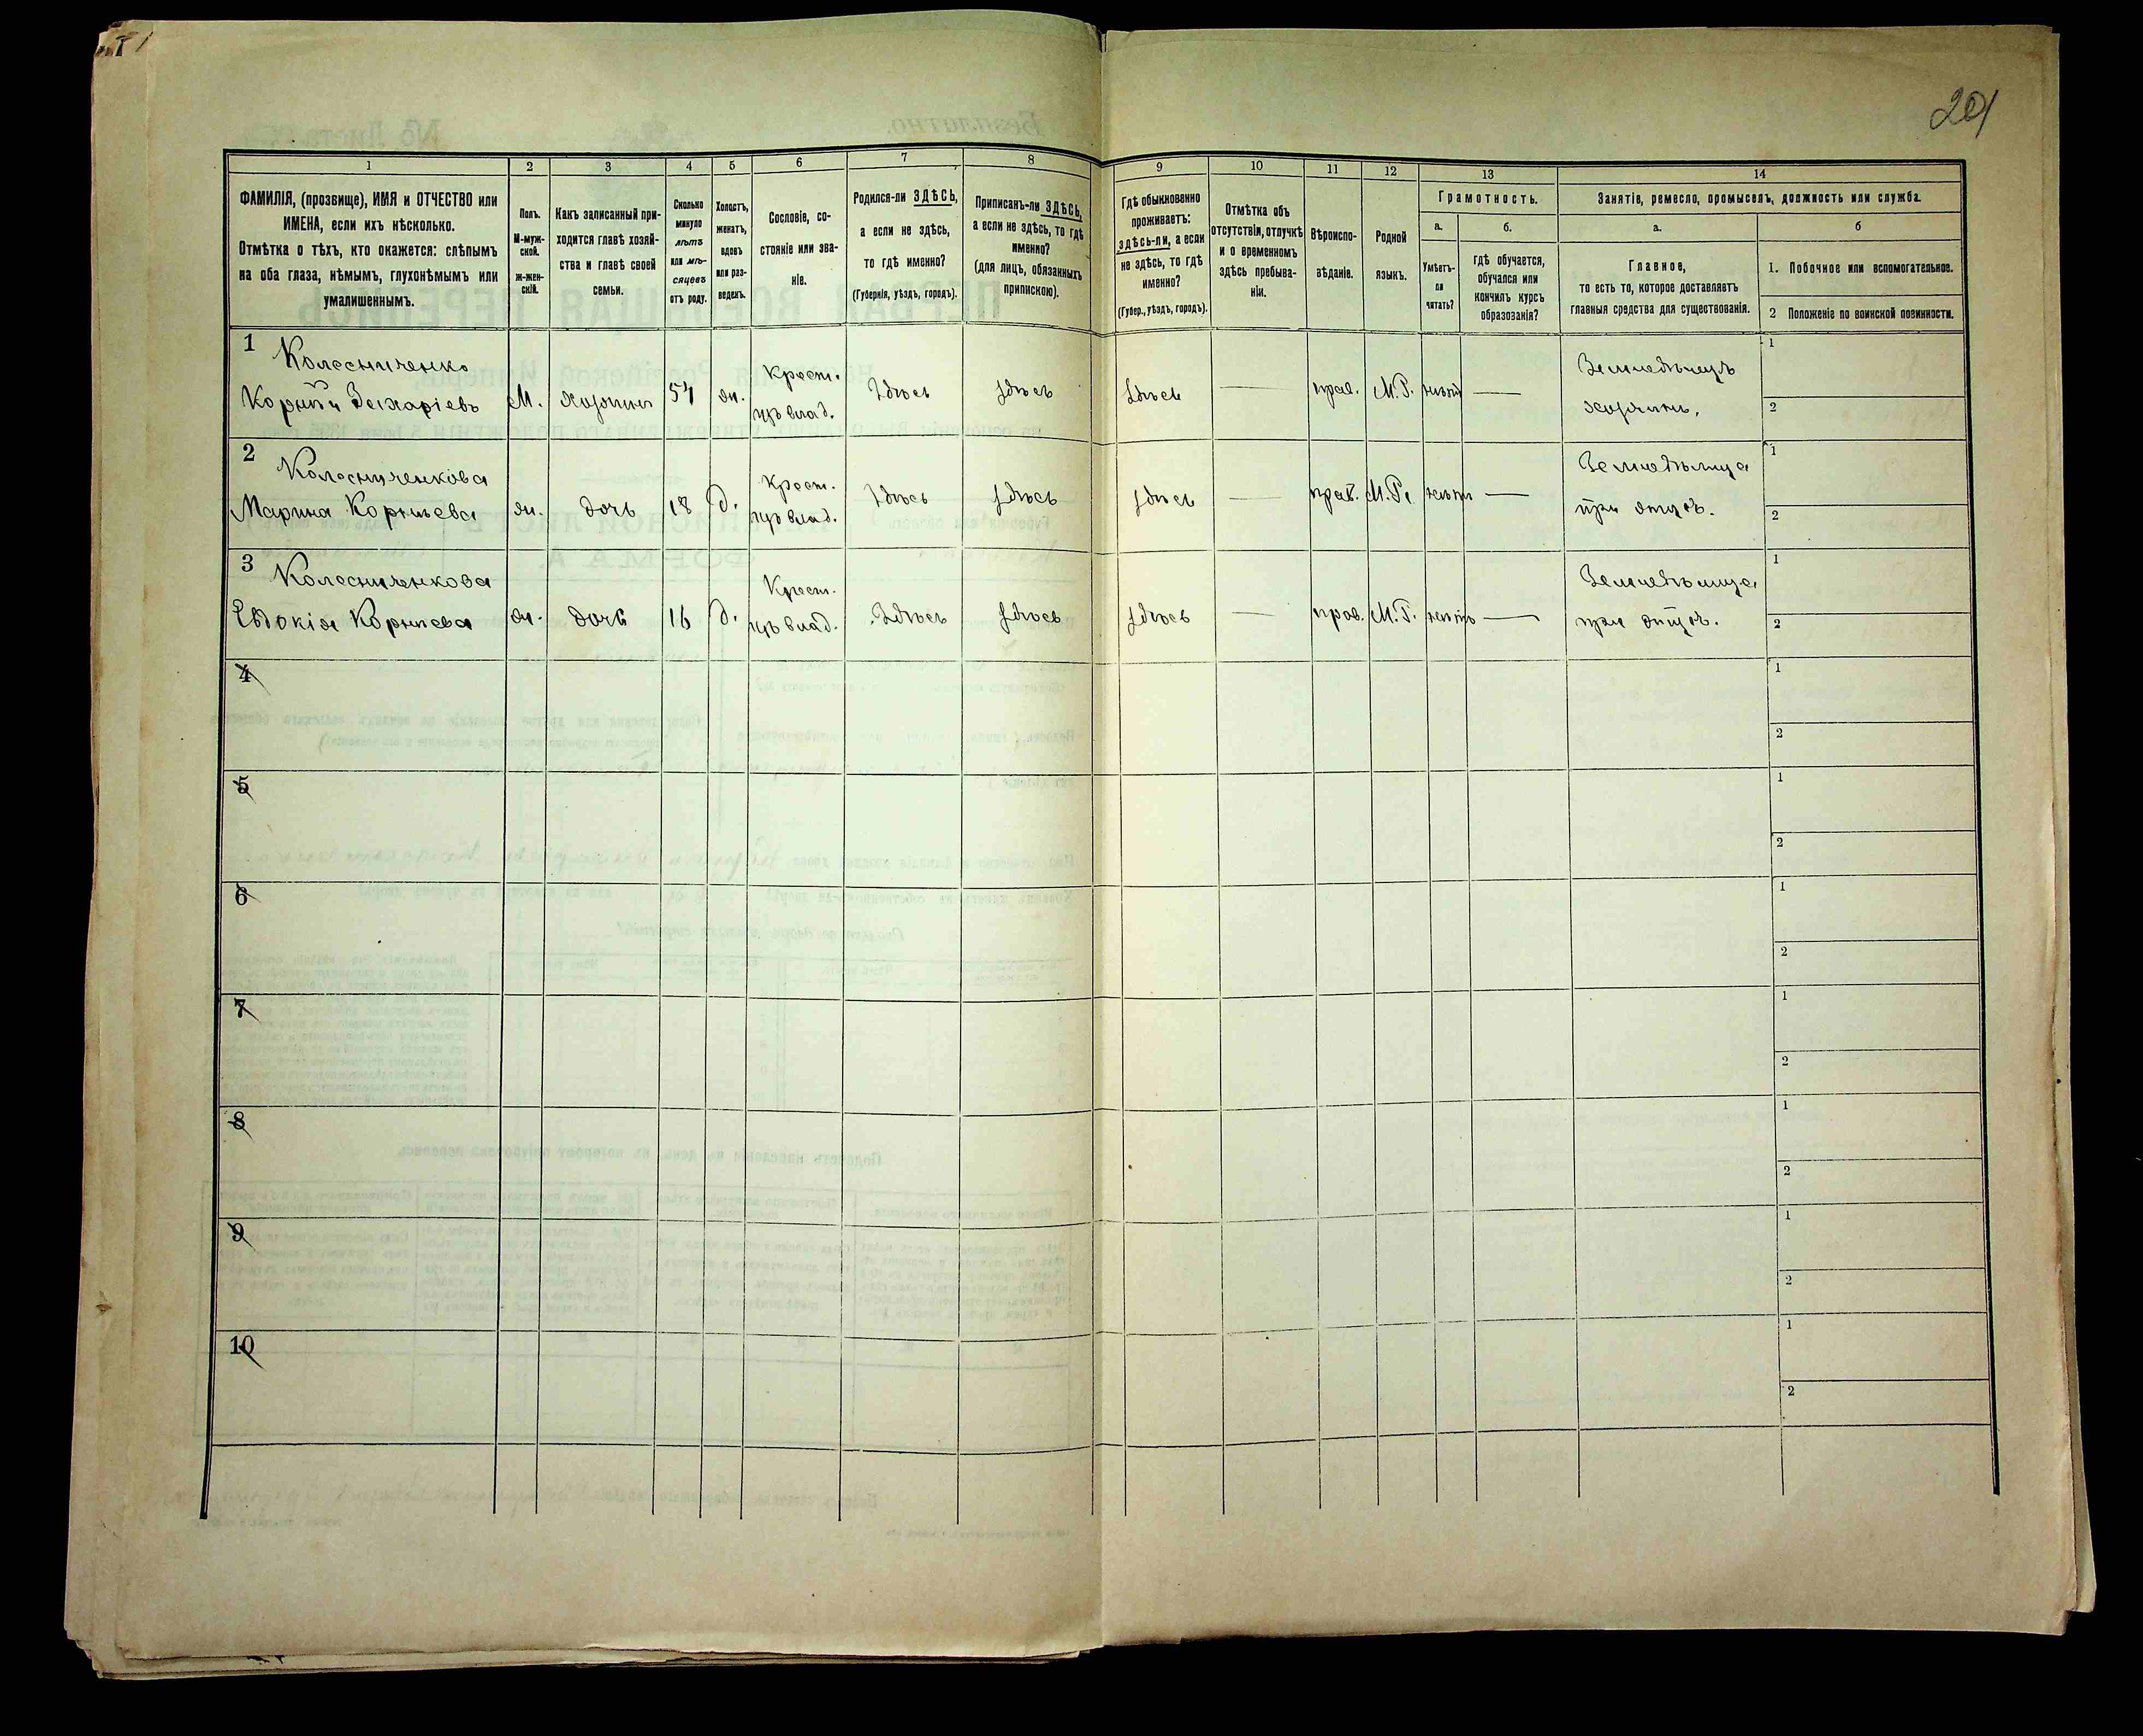 201
1
2
3
4
5
6
7
8
9
10
11
12
13
14
ФАМИЛІЯ, (прозвище), ИМЯ и ОТЧЕСТВО или
ИМЕНА, если ихъ нѣсколько.
Отмѣтка о тѣхъ, кто окажется: слѣпымъ
на оба глаза, нѣмымъ, глухонѣмымъ или
умалишеннымъ.
Полъ.
М-муж-
ской.
ж-жен-
скій.
Какъ записанный при-
ходится главѣ хозяй-
ства и главѣ своей
семьи.
Сколько
минуло
лѣтъ
или мѣ-
сяцевъ
отъ роду.
Холостъ,
женатъ,
вдовъ
или раз-
веденъ.
Сословіе, со-
стояніе или зва-
ніе.
Родился-ли ЗДѢСЬ,
а если не здѣсь,
то гдѣ именно?
(Губернія, уѣздъ, городъ).
Приписанъ-ли ЗДѢСЬ,
а если не здѣсь, то гдѣ
именно?
(для лицъ, обязанныхъ
припискою).
Гдѣ обыкновенно
проживаетъ:
здѣсь-ли, а если
не здѣсь, то гдѣ
именно?
(Губер., уѣздъ, городъ).
Отмѣтка объ
отсутствіи, отлучкѣ
и о временномъ
здѣсь пребыва-
ніи.
Вѣроиспо-
вѣданіе.
Родной
языкъ.
Грамотность.
а.
Умѣетъ-
ли
читать?
б.
гдѣ обучается,
обучался или
кончилъ курсъ
образованія?
Занятіе, ремесло, промыселъ, должность или служба.
а.
Главное,
то есть то, которое доставляетъ
главныя средства для существованія.
б
1. Побочное или вспомогательное.
2 Положеніе по воинской повинности.
1
Колесниченко
Корній Захаріевъ
М.
хозяинъ
54
ж.
Крест.
изъ влад.
Здѣсь
здѣсь
здѣсь
—
прав.
М.Р.
нѣтъ
—
Земледѣлецъ
хозяинъ.
1
2
2
Колесниченкова
Марина Корніева
ж.
дочь
18
д.
Крест.
изъ влад.
Здѣсь
здѣсь
здѣсь
—
прав.
М.Р.
нѣтъ
—
Земледѣлица
при отцѣ.
1
2
3
Колесниченкова
Евдокія Корніева
ж.
дочь
16
д.
Крест.
изъ влад.
Здѣсь
здѣсь
здѣсь
—
прав.
М.Р.
нѣтъ
—
Земледѣлица
при отцѣ.
1
2
4
1
2
5
1
2
6
1
2
7
1
2
8
1
2
9
1
2
10
1
2